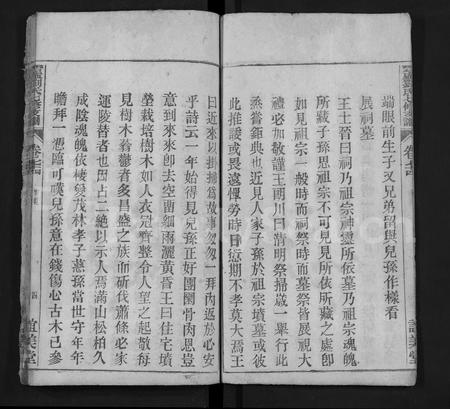 端眼前生子又兄弟留與兒孫作樣看
展祠墓
王士晉曰祠乃祖宗神靈所依墓乃祖宗魂魄
所藏子孫思祖宗不可見見所依所藏之處卽
如見祖宗一般時而祠祭時而墓祭皆展視大
禮必加敬謹王朗川曰清明祭掃歲一舉行此
烝嘗鉅典也近見人家子孫於祖宗墳墓或彼
此推諉或畏遠憚勞時日愆期不孝莫大焉王
誼美堂
曰近來以掛掃爲故事匆匆一拜內返於心安
乎詩云一年始得見兒孫正好團圞骨肉恩豈
意到來來卽去空菌細雨灑黃昏王曰住宅墳
塋栽培樹木如人衣冠齊整令人望之起敬每
見樹木蓊鬱者多昌盛之族而斫伐蕭條必家
運陵替者也因占二絶以示人焉滿山松柏久
成陰魂魄依棲變茂林孝子慈孫當世守年年
瞻拜一憑臨可嘆兒孫意在錢傷心古木已參
卷之
四
誼美堂